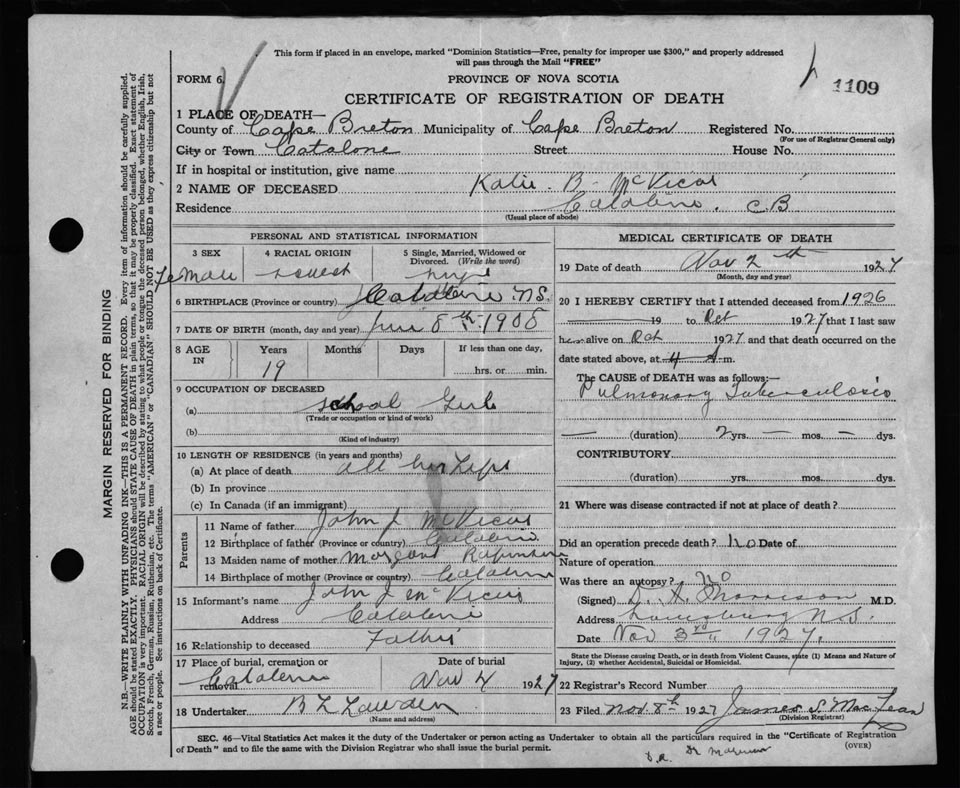 This form if placed in an envelope, marked "Dominion Statistics—Free, penalty for improper use $300," and properly addressed
will pass through the Mail "FREE"
FORM 6
PROVINCE OF NOVA SCOTIA
1109
CERTIFICATE OF REGISTRATION OF DEATH
1 PLACE OF DEATH—
County of Cape Breton Municipality of Cape Breton Registered No.
(For use of Registrar General only)
City or Town Catalone Street House No.
If in hospital or institution, give name
2 NAME OF DECEASED Katie B McVicar
Residence Catalone C.B
(Usual place of abode)
PERSONAL AND STATISTICAL INFORMATION
3 SEX 4 RACIAL ORIGIN 5 Single, Married, Widowed or Divorced. (Write the word)
Female
6 BIRTHPLACE (Province or country) Catalone N.S.
7 DATE OF BIRTH (month, day and year) 8th 1908
8 AGE IN Years Months Days If less than one day,
19 hrs. or min.
9 OCCUPATION OF DECEASED
(a) School Girl
(Trade or occupation or kind of work)
(b)
(Kind of industry)
10 LENGTH OF RESIDENCE (in years and months)
(a) At place of death all her Life
(b) In province
(c) In Canada (if an immigrant)
Parents
11 Name of father John J McVicar
12 Birthplace of father (Province or country) Catalone
13 Maiden name of mother Margaret
14 Birthplace of mother (Province or country) Catalone
15 Informant's name John J McVicar
Address Catalone
16 Relationship to deceased Father
17 Place of burial, cremation or removal Catalone
Date of burial Nov 4 1927
18 Undertaker B L
(Name and address)
MEDICAL CERTIFICATE OF DEATH
19 Date of death Nov 2th 1927
(Month, day and year)
20 I HEREBY CERTIFY that I attended deceased from 1926
19 to Oct 1927 that I last saw
her alive on Oct 1927 and that death occurred on the
date stated above, at 4 m.
The CAUSE OF DEATH was as follows:—
Pulmonary Tuberculosis
— (duration) 2 yrs. — mos. — dys.
CONTRIBUTORY
(duration) yrs. mos. dys.
21 Where was disease contracted if not at place of death?
Did an operation precede death? no Date of
Nature of operation
Was there an autopsy? no
(Signed) D. A. Morrison M.D.
Address Louisburg N.S.
Date Nov 3rd 1927.
State the Disease causing Death, or in death from Violent Causes, state (1) Means and Nature of
Injury, (2) whether Accidental, Suicidal or Homicidal.
22 Registrar's Record Number
23 Filed Nov. 8th 1927 James S. MacLean
(Division Registrar)
SEC. 46—Vital Statistics Act makes it the duty of the Undertaker or person acting as Undertaker to obtain all the particulars required in the "Certificate of Registration
of Death" and to file the same with the Division Registrar who shall issue the burial permit.
(OVER)
MARGIN RESERVED FOR BINDING
N.B.—WRITE PLAINLY WITH UNFADING INK—THIS IS A PERMANENT RECORD. Every item of information should be carefully supplied.
AGE should be stated EXACTLY. PHYSICIANS should STATE CAUSE OF DEATH in plain terms, so that it may be properly classified. Exact statement of
OCCUPATION is very important. RACIAL ORIGIN will be described by stating to what people or tongue the deceased person belonged, whether English, Irish,
Scotch, French, German, Russian, Ruthenian, etc. The terms "AMERICAN" or "CANADIAN" SHOULD NOT BE USED as they express citizenship but not
a race or people. See instructions on back of Certificate.